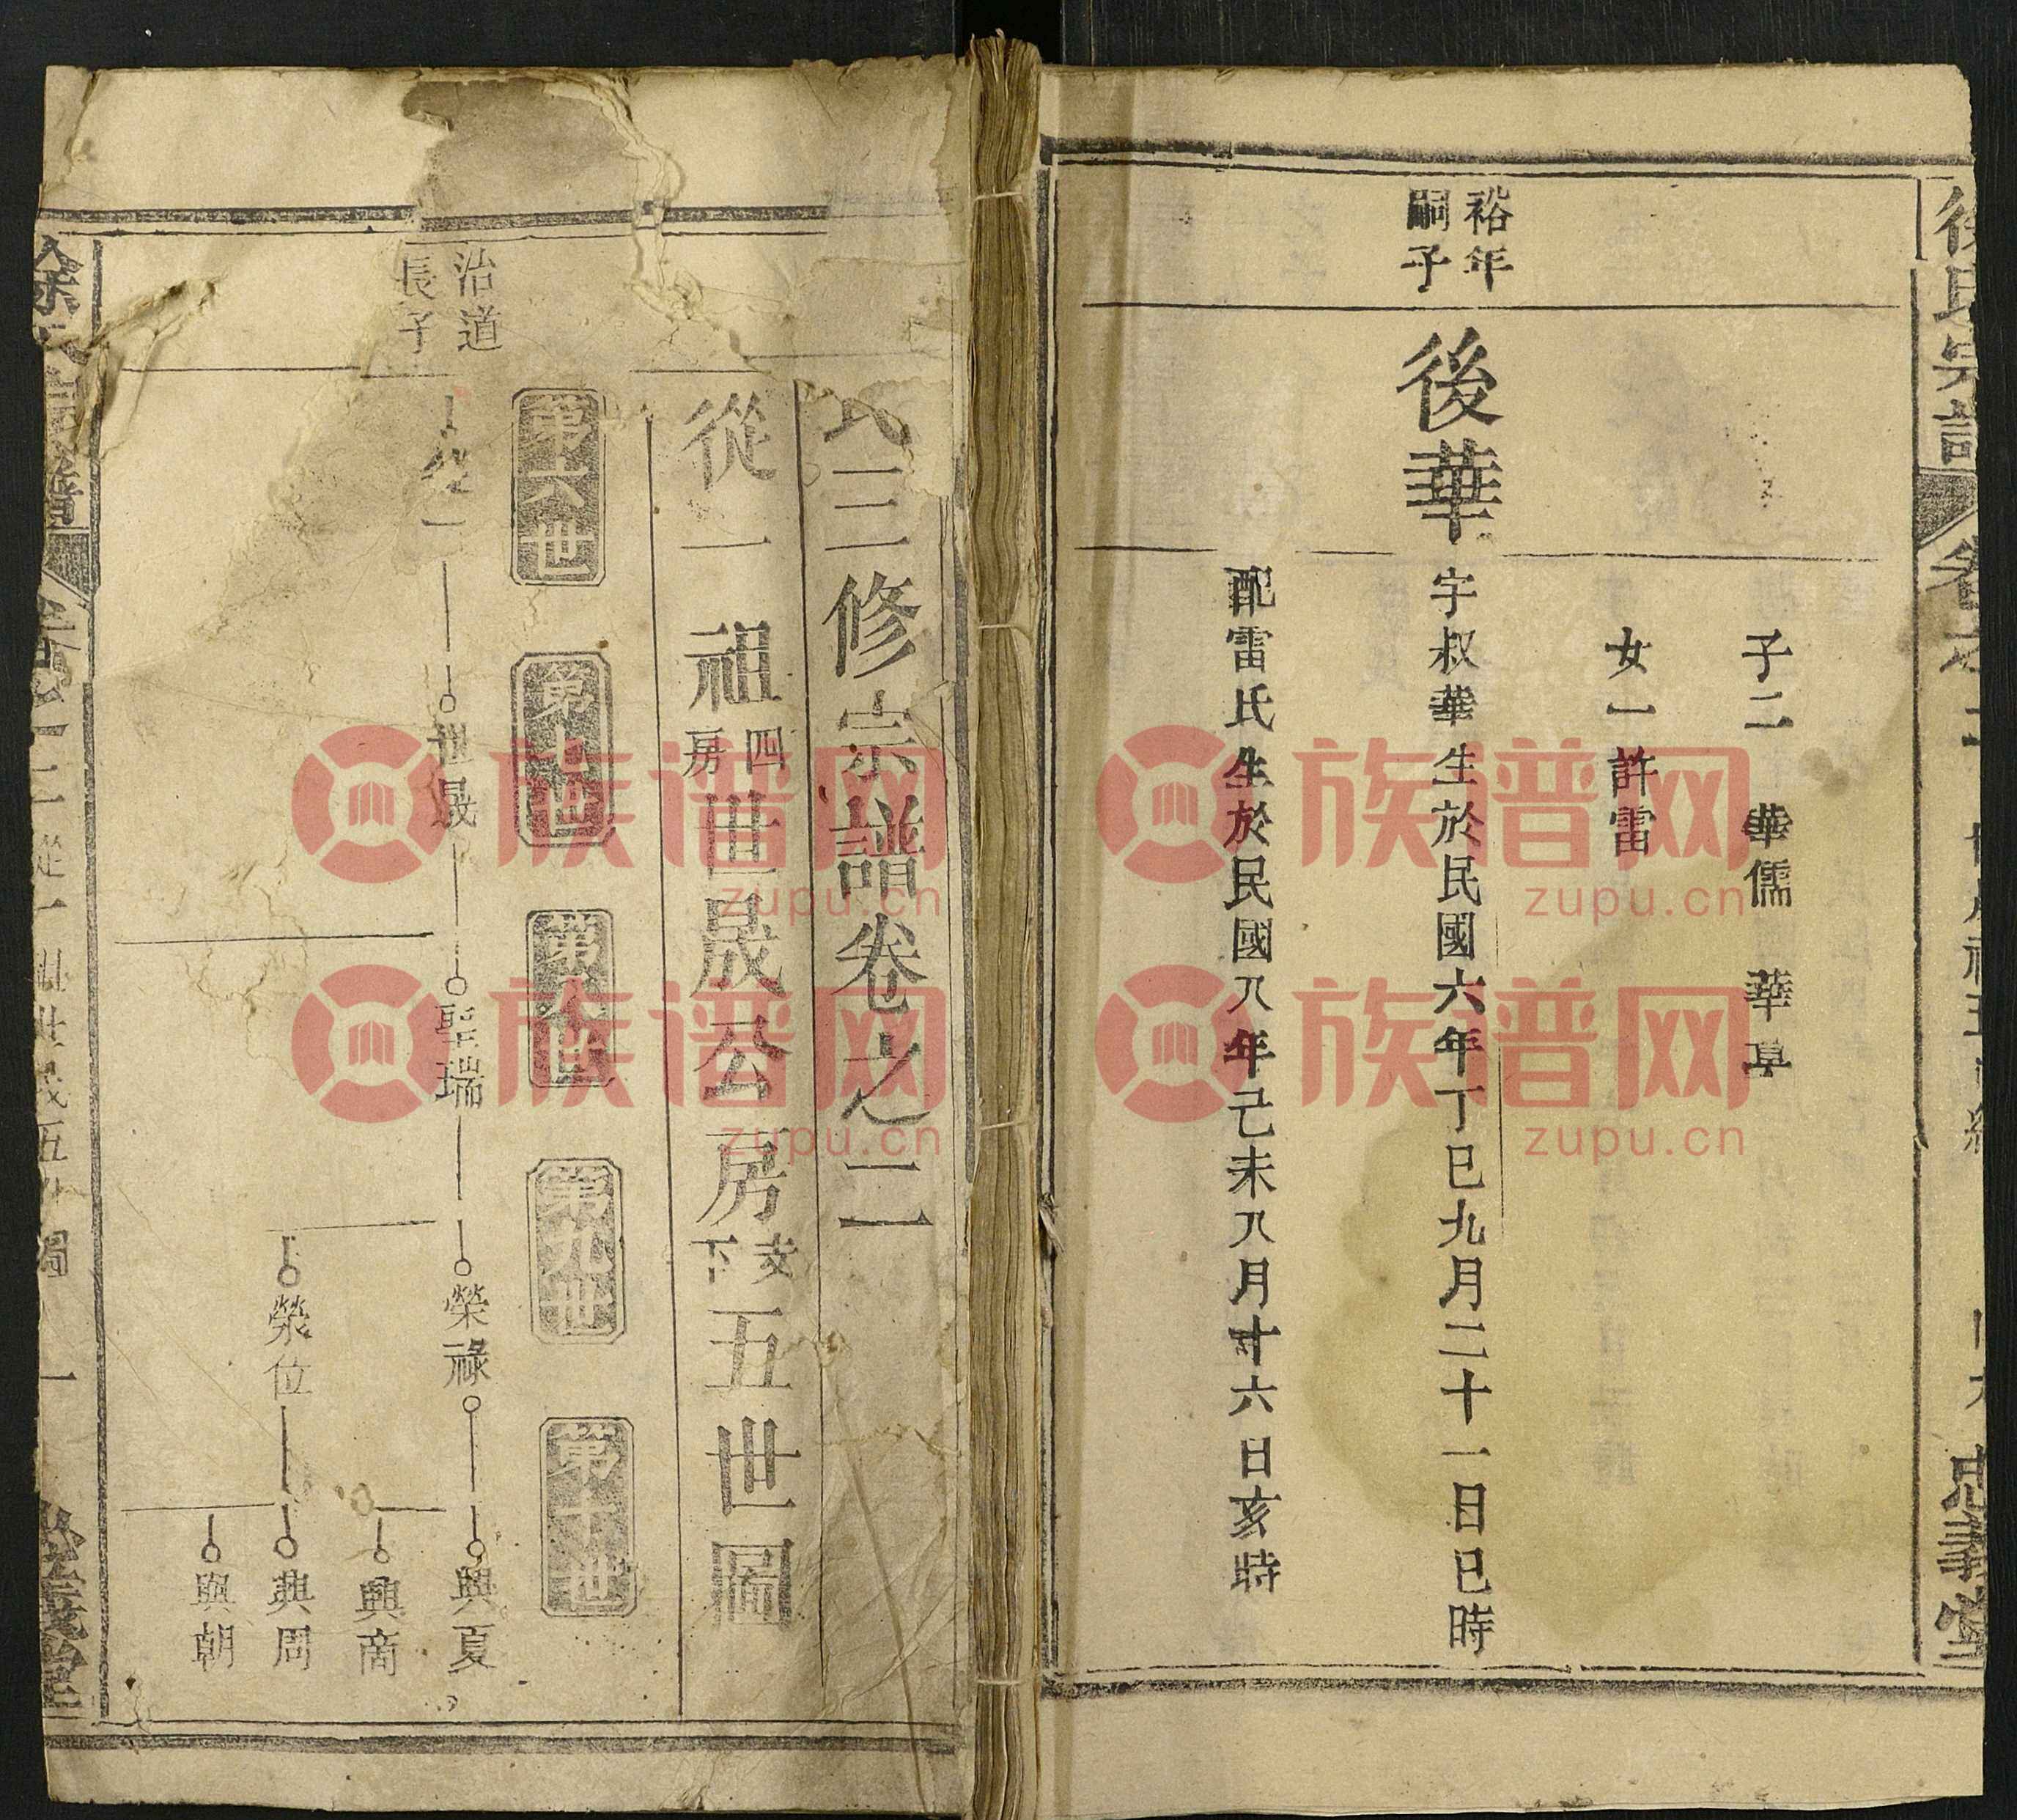 子二 華儒 華阜
女一許雷
裕年
嗣子
後華
字叔華生於民國六年丁巳九月二十一日巳時
配雷氏生於民國八年己未八月十六日亥時
忠義堂
氏三修宗譜卷之二
從一祖四房世晟公房支下五世圖
第六世
第七世
第八世
第九世
第十世
治道
長子
世晟
聖瑞
榮祿
興夏
興商
榮位
興周
興朝
族谱网
zupu.cn
族谱网
zupu.cn
族谱网
zupu.cn
族谱网
zupu.cn